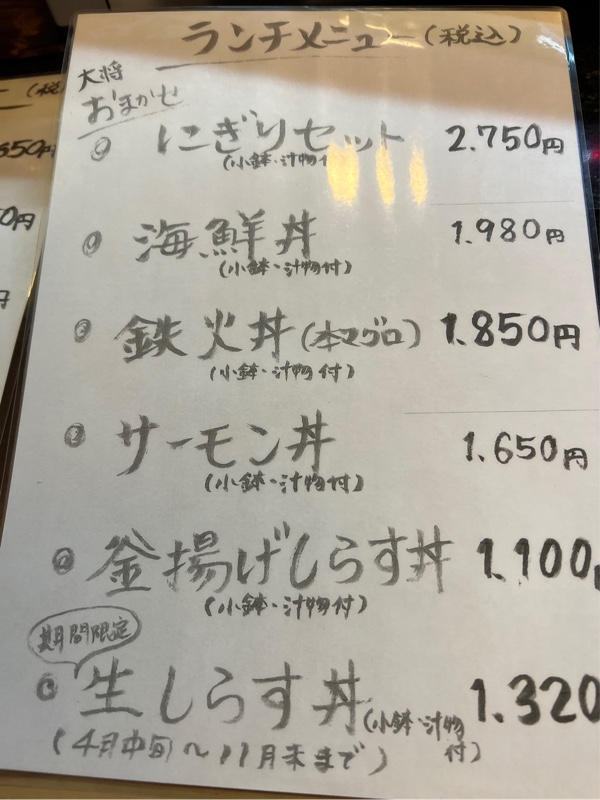 ランチメニュー(税込)
大将
おまかせ
にぎりセット 2.750円
(小鉢・汁物付
海鮮丼 1.980円
(小鉢・汁物付)
鉄火丼(本マグロ) 1.850円
(小鉢・汁物付)
サーモン丼 1.650円
(小鉢・汁物付)
釜揚げしらす丼 1.100
(小鉢・汁物付)
期間限定
生しらす丼(小鉢・汁物付) 1.320
(4月中旬〜11月末まで)
(税
650円
0円
円